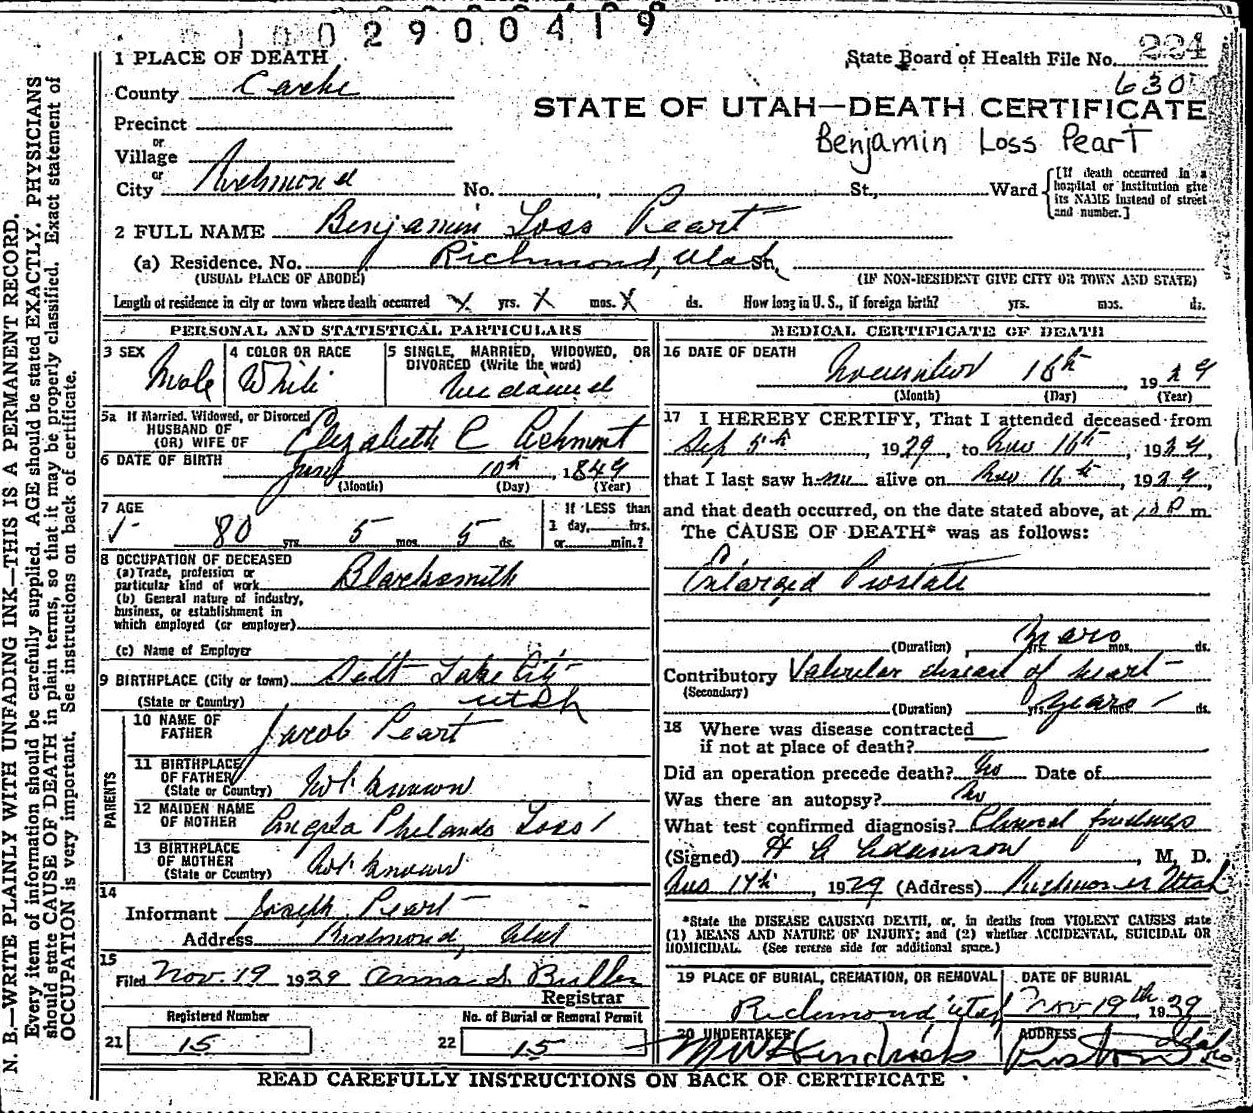 1002900419
1 PLACE OF DEATH
State Board of Health File No. 224
630
County Cache
STATE OF UTAH—DEATH CERTIFICATE
Precinct
Benjamin Loss Peart
or
Village
or
City Richmond No. , St., Ward
[If death occurred in a hospital or institution give its NAME instead of street and number.]
2 FULL NAME Benjamin Loss Peart
(a) Residence. No. Richmond, Utah St.
(USUAL PLACE OF ABODE) (IF NON-RESIDENT GIVE CITY OR TOWN AND STATE)
Length of residence in city or town where death occurred X yrs. X mos. X ds. How long in U. S., if foreign birth? yrs. mos. ds.
PERSONAL AND STATISTICAL PARTICULARS
3 SEX Male
4 COLOR OR RACE White
5 SINGLE, MARRIED, WIDOWED, OR DIVORCED (Write the word)
5a If Married, Widowed, or Divorced
HUSBAND OF
(OR) WIFE OF Elizabeth C
6 DATE OF BIRTH
10th, 1849
(Month) (Day) (Year)
7 AGE
80 yrs. 5 mos. 5 ds.
If LESS than
1 day, hrs.
or min.?
8 OCCUPATION OF DECEASED
(a) Trade, profession or
particular kind of work Blacksmith
(b) General nature of industry,
business, or establishment in
which employed (or employer)
(c) Name of Employer
9 BIRTHPLACE (City or town) Salt Lake City
(State or Country) Utah
PARENTS
10 NAME OF
FATHER Jacob Peart
11 BIRTHPLACE
OF FATHER
(State or Country) Not known
12 MAIDEN NAME
OF MOTHER Phelando Loss
13 BIRTHPLACE
OF MOTHER
(State or Country) Not known
14
Informant Joseph Peart
Address Richmond, Utah
15
Filed Nov. 19 1929 Anna S.
Registrar
Registered Number No. of Burial or Removal Permit
21 15 22 15
MEDICAL CERTIFICATE OF DEATH
16 DATE OF DEATH
November 16th, 1929
(Month) (Day) (Year)
17 I HEREBY CERTIFY, That I attended deceased from
Sep 5th, 1929, to Nov 16th, 1929
that I last saw him alive on Nov 16th, 1929,
and that death occurred, on the date stated above, at m.
The CAUSE OF DEATH* was as follows:
Enlarged Prostate
(Duration) years yrs. mos. ds.
Contributory Valvular disease of heart
(Secondary)
(Duration) years yrs. mos. ds.
18 Where was disease contracted
if not at place of death?
Did an operation precede death? No Date of
Was there an autopsy? No
What test confirmed diagnosis? Clinical findings
(Signed) Adamson, M. D.
Nov 17th, 1929 (Address) Richmond Utah
*State the DISEASE CAUSING DEATH, or, in deaths from VIOLENT CAUSES state
(1) MEANS AND NATURE OF INJURY; and (2) whether ACCIDENTAL, SUICIDAL OR
HOMICIDAL. (See reverse side for additional space.)
19 PLACE OF BURIAL, CREMATION, OR REMOVAL DATE OF BURIAL
Richmond Utah Nov. 19th, 1929
20 UNDERTAKER ADDRESS
Hendricks Preston Idaho
READ CAREFULLY INSTRUCTIONS ON BACK OF CERTIFICATE
N. B.—WRITE PLAINLY WITH UNFADING INK—THIS IS A PERMANENT RECORD.
Every item of information should be carefully supplied. AGE should be stated EXACTLY. PHYSICIANS
should state CAUSE OF DEATH in plain terms, so that it may be properly classified. Exact statement of
OCCUPATION is very important. See instructions on back of certificate.